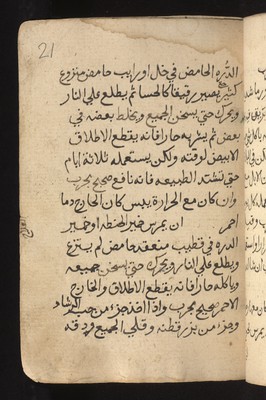 21
الذره الحامض في خل او رايب حامض منزوع
كثير يصير رقيقا كالحسا ثم يطلع علي النار
ويحرك حتي يسخن الجميع ويخلط بعضه في
بعض ثم يشربه حارا فانه يقطع الاطلاق
الابيض لوقته ولكن يستعمله ثلاثة ايام
حتي تشتد الطبيعه فانه نافع صحيح مجرب
وان كان مع الحرارة يبس كان الخارج دما
احمر ان يمرس خبز الحنطه او خمير
الذره في قطيب منعقد حامض لم ينزع
ويطلع علي النار ويحرك حتي يسخن جميعه
وياكله حارا فانه يقطع الاطلاق والخارج
الاحمر صحيح مجرب واذا اخذ جزء من حب الرشاد
وجزء من بزر قطنه وقلي الجميع ودقه